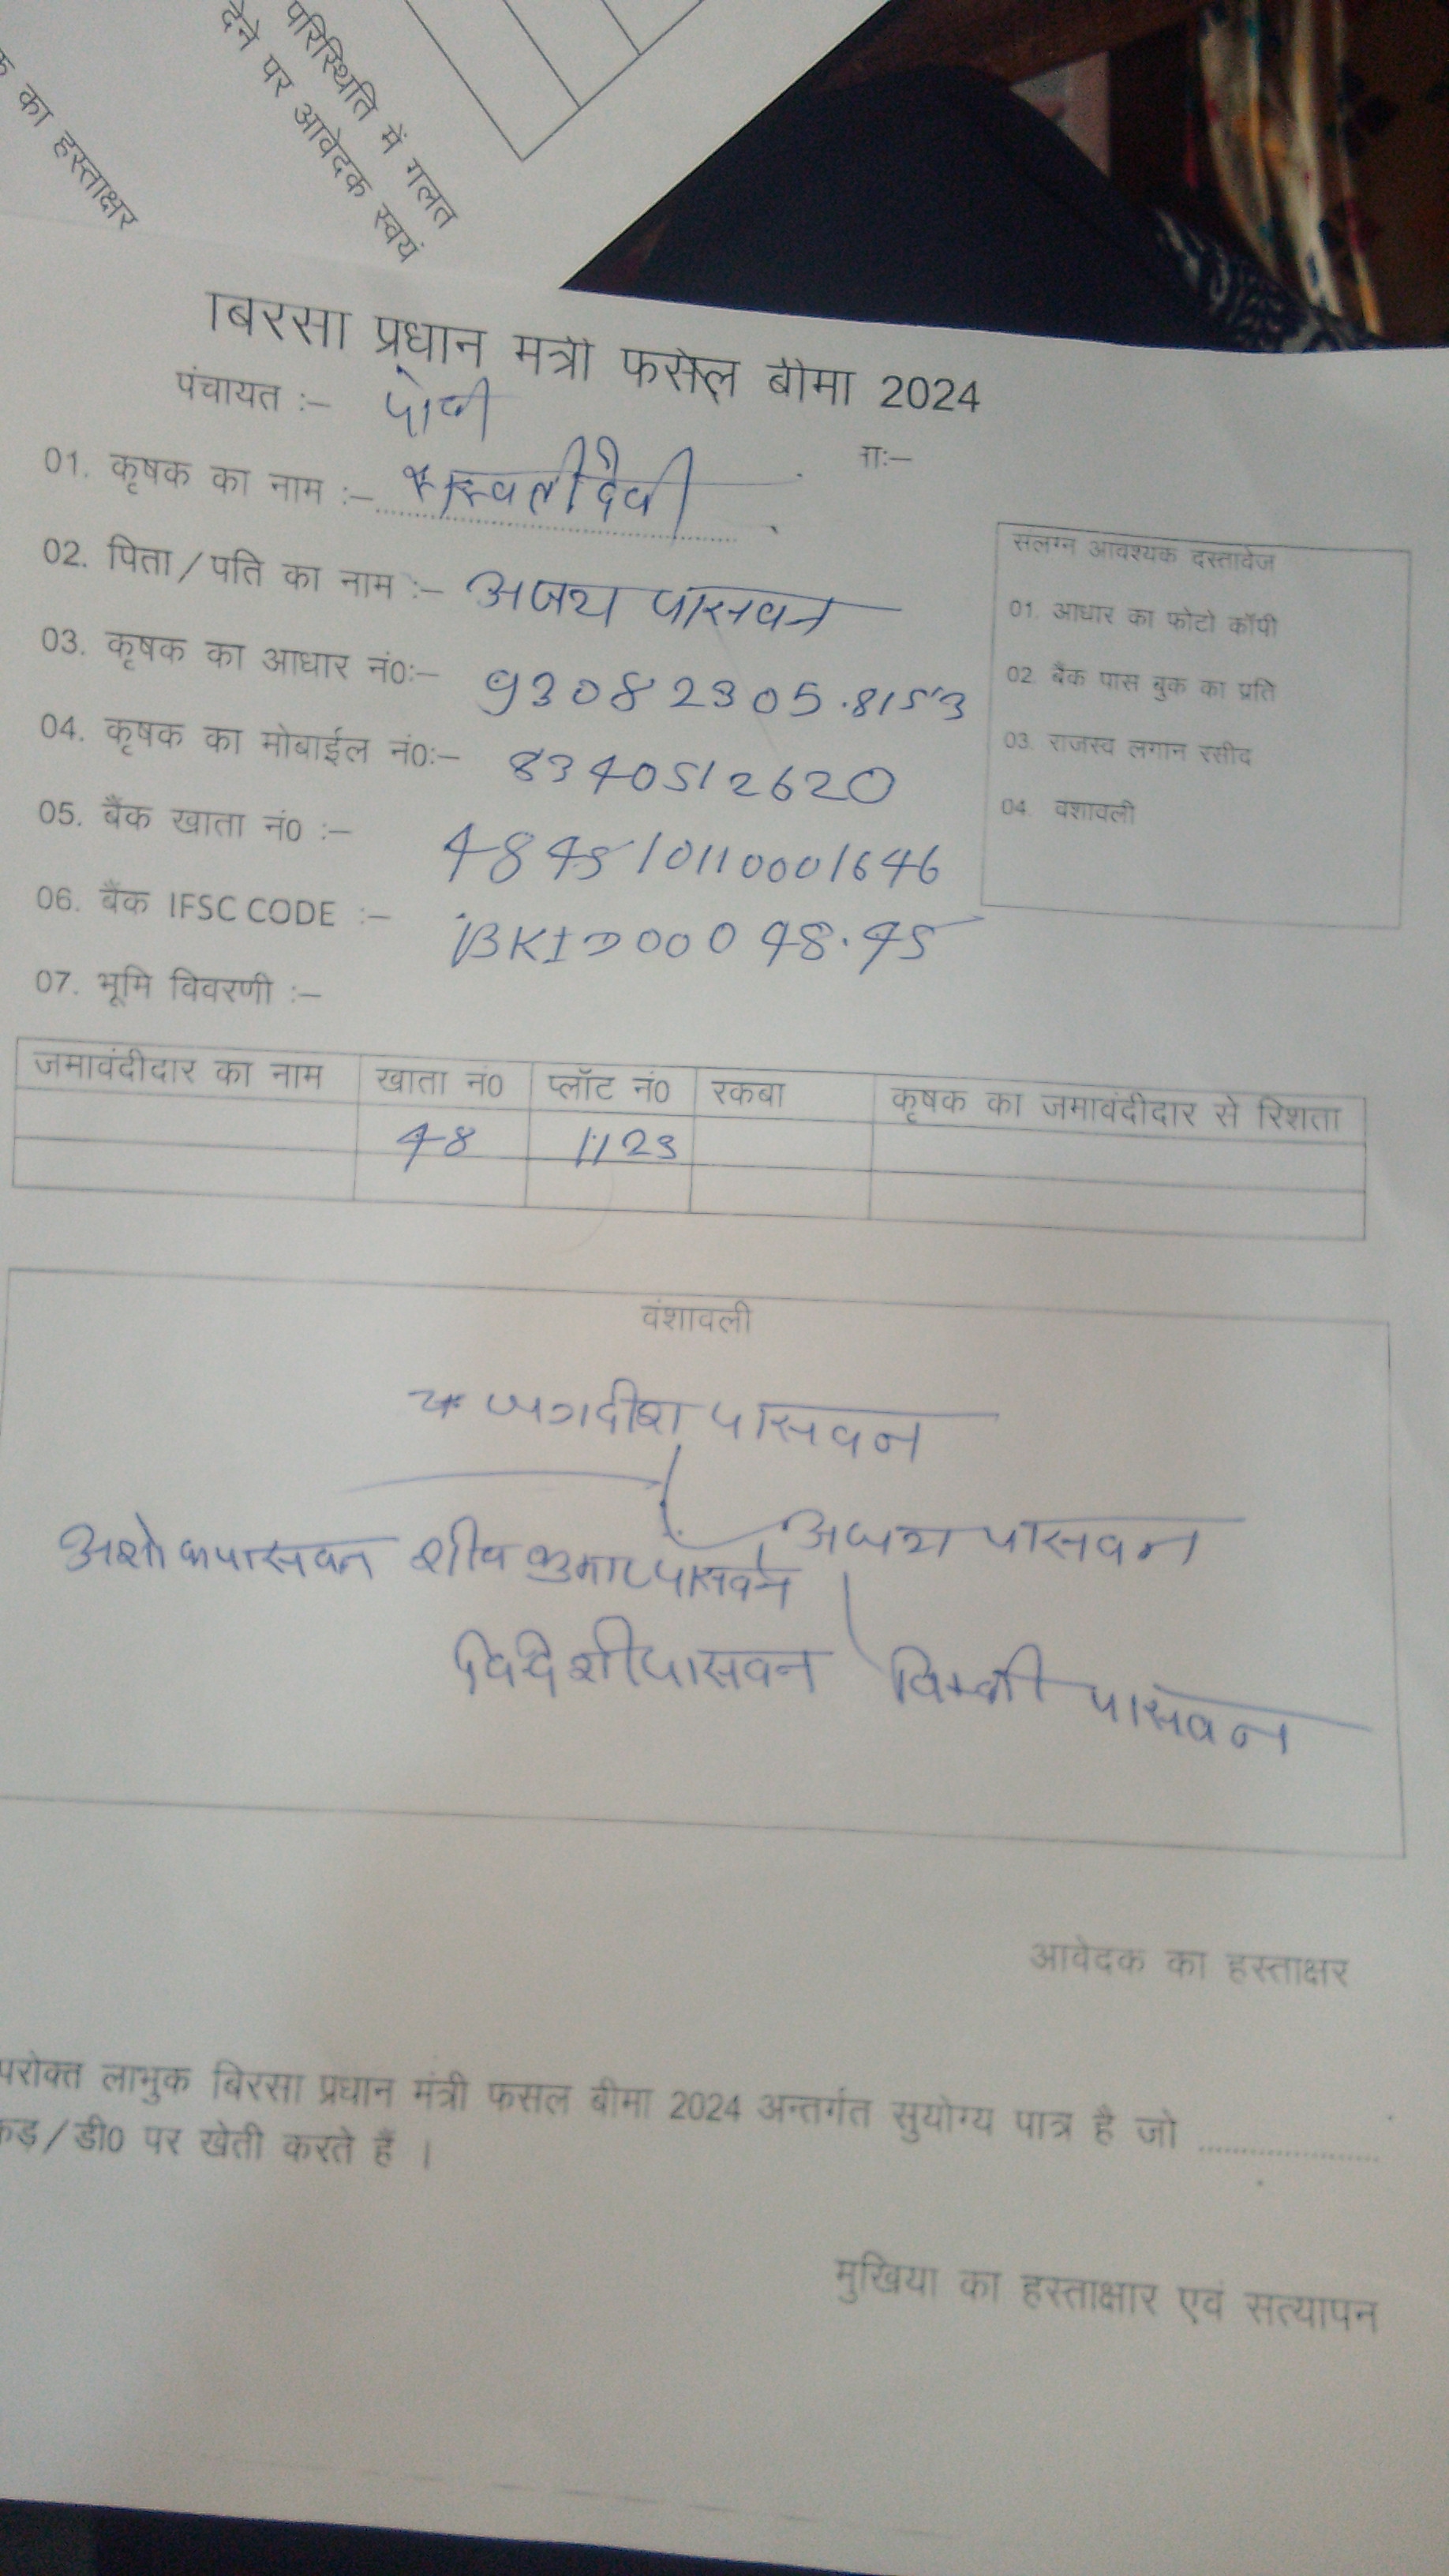 क का हस्ताक्षर
परिस्थिति में गलत
देने पर आवेदक स्वयं
बिरसा प्रधान मंत्री फसल बीमा 2024
पंचायत :–
01. कृषक का नाम :– सरस्वती देवी
02. पिता/पति का नाम :– अजय पासवान
03. कृषक का आधार नं0:– 93082305.8153
04. कृषक का मोबाईल नं0:– 8340512620
05. बैंक खाता नं0 :– 484510110001646
06. बैंक IFSC CODE :– BKID00048.45
07. भूमि विवरणी :–
संलग्न आवश्यक दस्तावेज
01. आधार का फोटो कॉपी
02. बैंक पास बुक का प्रति
03. राजस्व लगान रसीद
04. वंशावली
जमावंदीदार का नाम खाता नं0 प्लॉट नं0 रकबा कृषक का जमावंदीदार से रिशता
48 1123
वंशावली
जगदीश पासवन
अशोक पासवन शीव कुमार पासवन अजय पासवन
विदेशी पासवन विक्की पासवन
आवेदक का हस्ताक्षर
परोक्त लाभुक बिरसा प्रधान मंत्री फसल बीमा 2024 अन्तर्गत सुयोग्य पात्र है जो ....................
कड़/डी0 पर खेती करते हैं ।
मुखिया का हस्ताक्षार एवं सत्यापन